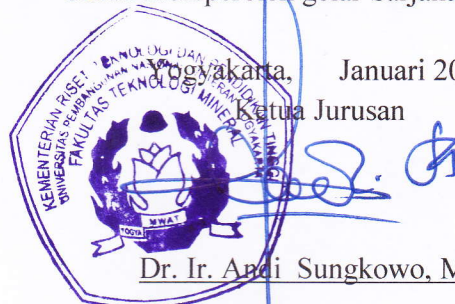 memperoleh gelar Sarjana
Yogyakarta, Januari 20
Ketua Jurusan
KEMENTERIAN RISET TEKNOLOGI DAN PENDIDIKAN TINGGI
UNIVERSITAS PEMBANGUNAN NASIONAL VETERAN YOGYAKARTA
FAKULTAS TEKNOLOGI MINERAL
WWAT
YOGYA
Dr. Ir. Andi Sungkowo, M